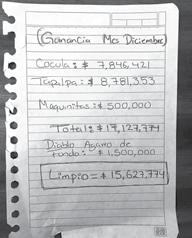 (Ganancia Mes Diciembre)
Cocula: $ 7,846,421
Tapalpa: $ 8,781,353
Maquinitas: $ 500,000
Total: $ 17,127,774
Diablo Agarro de
fondo: $ 1,500,000
Limpio = $ 15,627,774